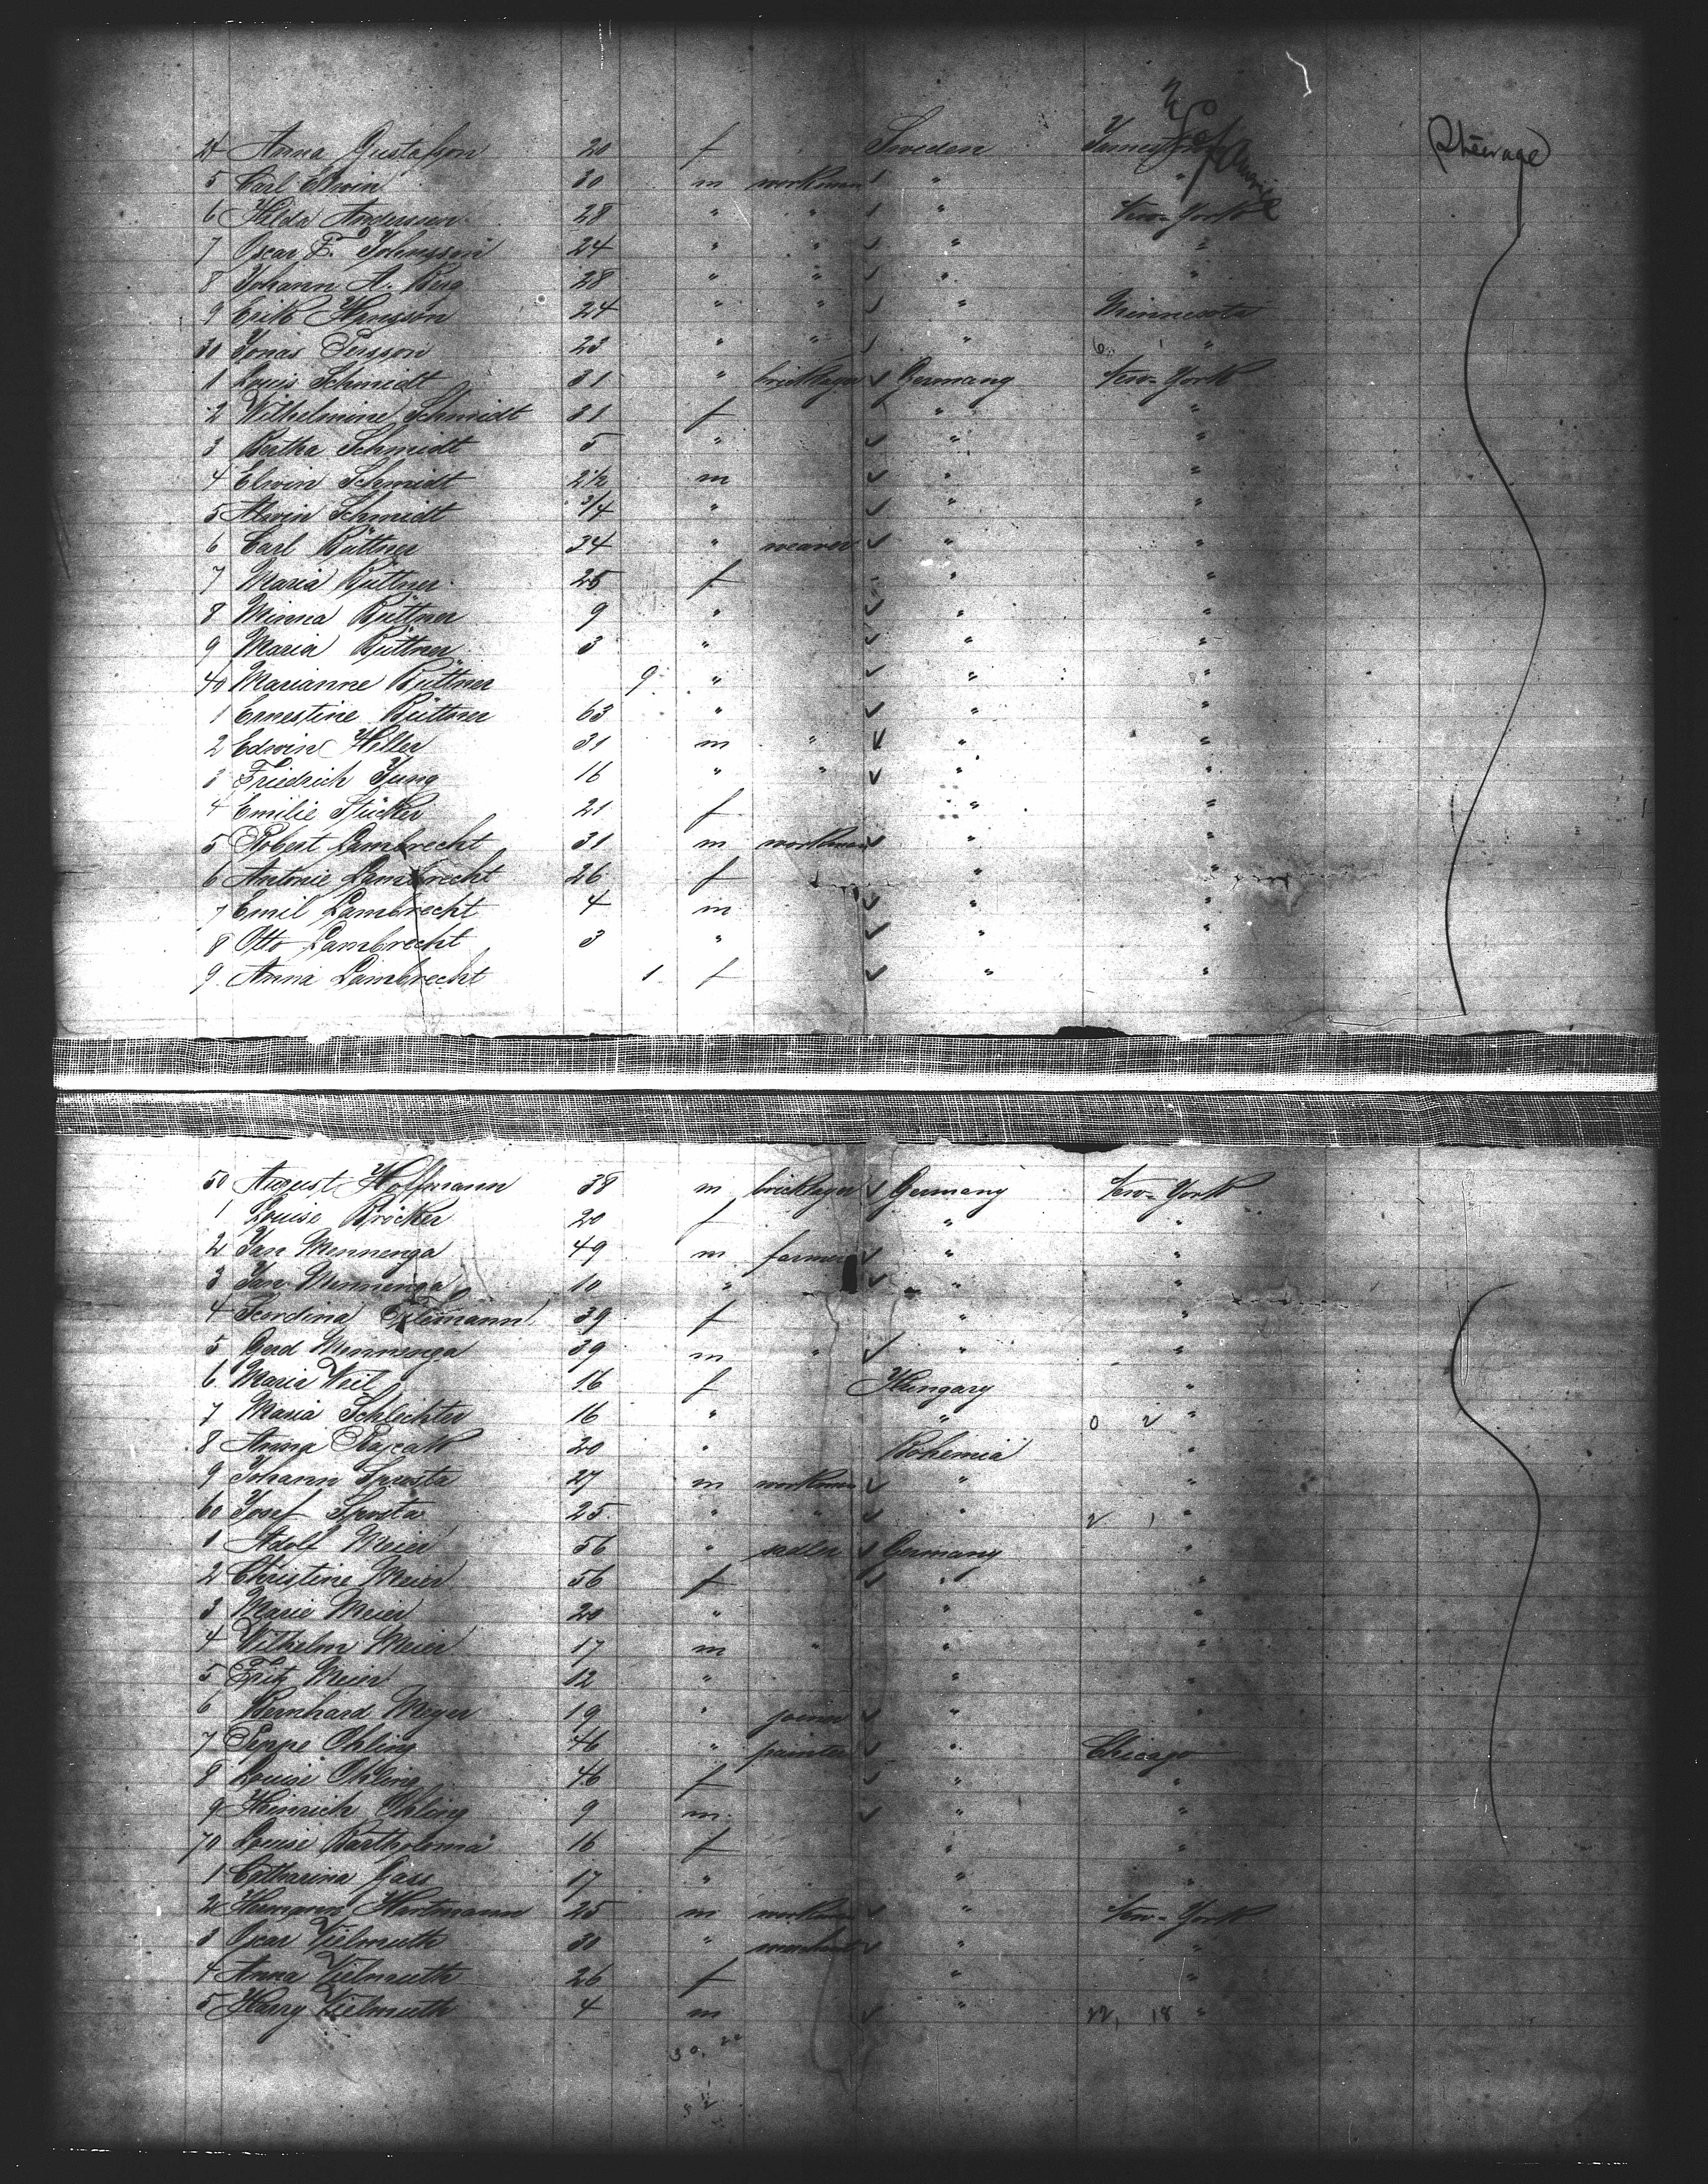 Steerage
24 Anna Gustafson 20 f Sweden
5 Carl Elwin 30 m workman " "
6 Hilda Anderssen 28 " " " New-York
7 Oscar F. Johnsson 24 " " " "
8 Johann A. Berg 28 " " " "
9 Erik Hansson 24 " " " Minnesota
30 Jonas Persson 23 " " " 6 1 "
1 Louis Schmidt 31 " bricklayer Germany New-York
2 Wilhelmine Schmidt 31 f " "
3 Bertha Schmidt 5 " " "
4 Elwin Schmidt 2 1/2 m " "
5 Alwin Schmidt 3/4 " " "
6 Carl Büttner 34 " weaver " "
7 Maria Büttner 25 f " "
8 Minna Büttner 9 " " "
9 Maria Büttner 3 " " "
40 Marianne Büttner 9 " " "
1 Ernestine Büttner 63 " " "
2 Edwin Hiller 31 m " " "
3 Friedrich Jung 16 " " " "
4 Emilie Stücker 21 f " "
5 Robert Lambrecht 31 m workman " "
6 Antonie Lambrecht 26 f " "
7 Emil Lambrecht 4 m " "
8 Otto Lambrecht 3 " " "
9 Anna Lambrecht 1 f " "
50 August Hoffmann 38 m bricklayer Germany New-York
1 Louise Bröcker 20 f " "
2 Jan Mennenga 49 m farmer " "
3 Jan Mennenga 10 " " "
4 39 f " "
5 Gerd Mennenga 39 m " " "
6 Maria Weil 16 f Hungary "
7 Maria Schlechter 16 " " 0 2 "
8 Anna 20 " Bohemia "
9 Johann Spusta 27 m workman " "
60 Josef Spusta 25 " " " 2 1 "
1 Adolf Meier 56 " sadler Germany "
2 Christine Meier 56 f " "
3 Marie Meier 20 " " "
4 Wilhelm Meier 17 m " " "
5 Fritz Meier 12 " " "
6 Bernhard Meyer 19 " joiner " "
7 Ohling 46 " painter " Chicago
8 Louise Ohling 46 f " "
9 Heinrich Ohling 9 m " "
70 Louise Bartholomä 16 f " "
1 Catharina Gass 17 " " "
2 Hermann Hartmann 25 m workman " New-York
3 Oscar Vielmuth 30 " merchant " "
4 Anna Vielmuth 26 f " "
5 Harry Vielmuth 4 m " 22, 18 "
30. 22